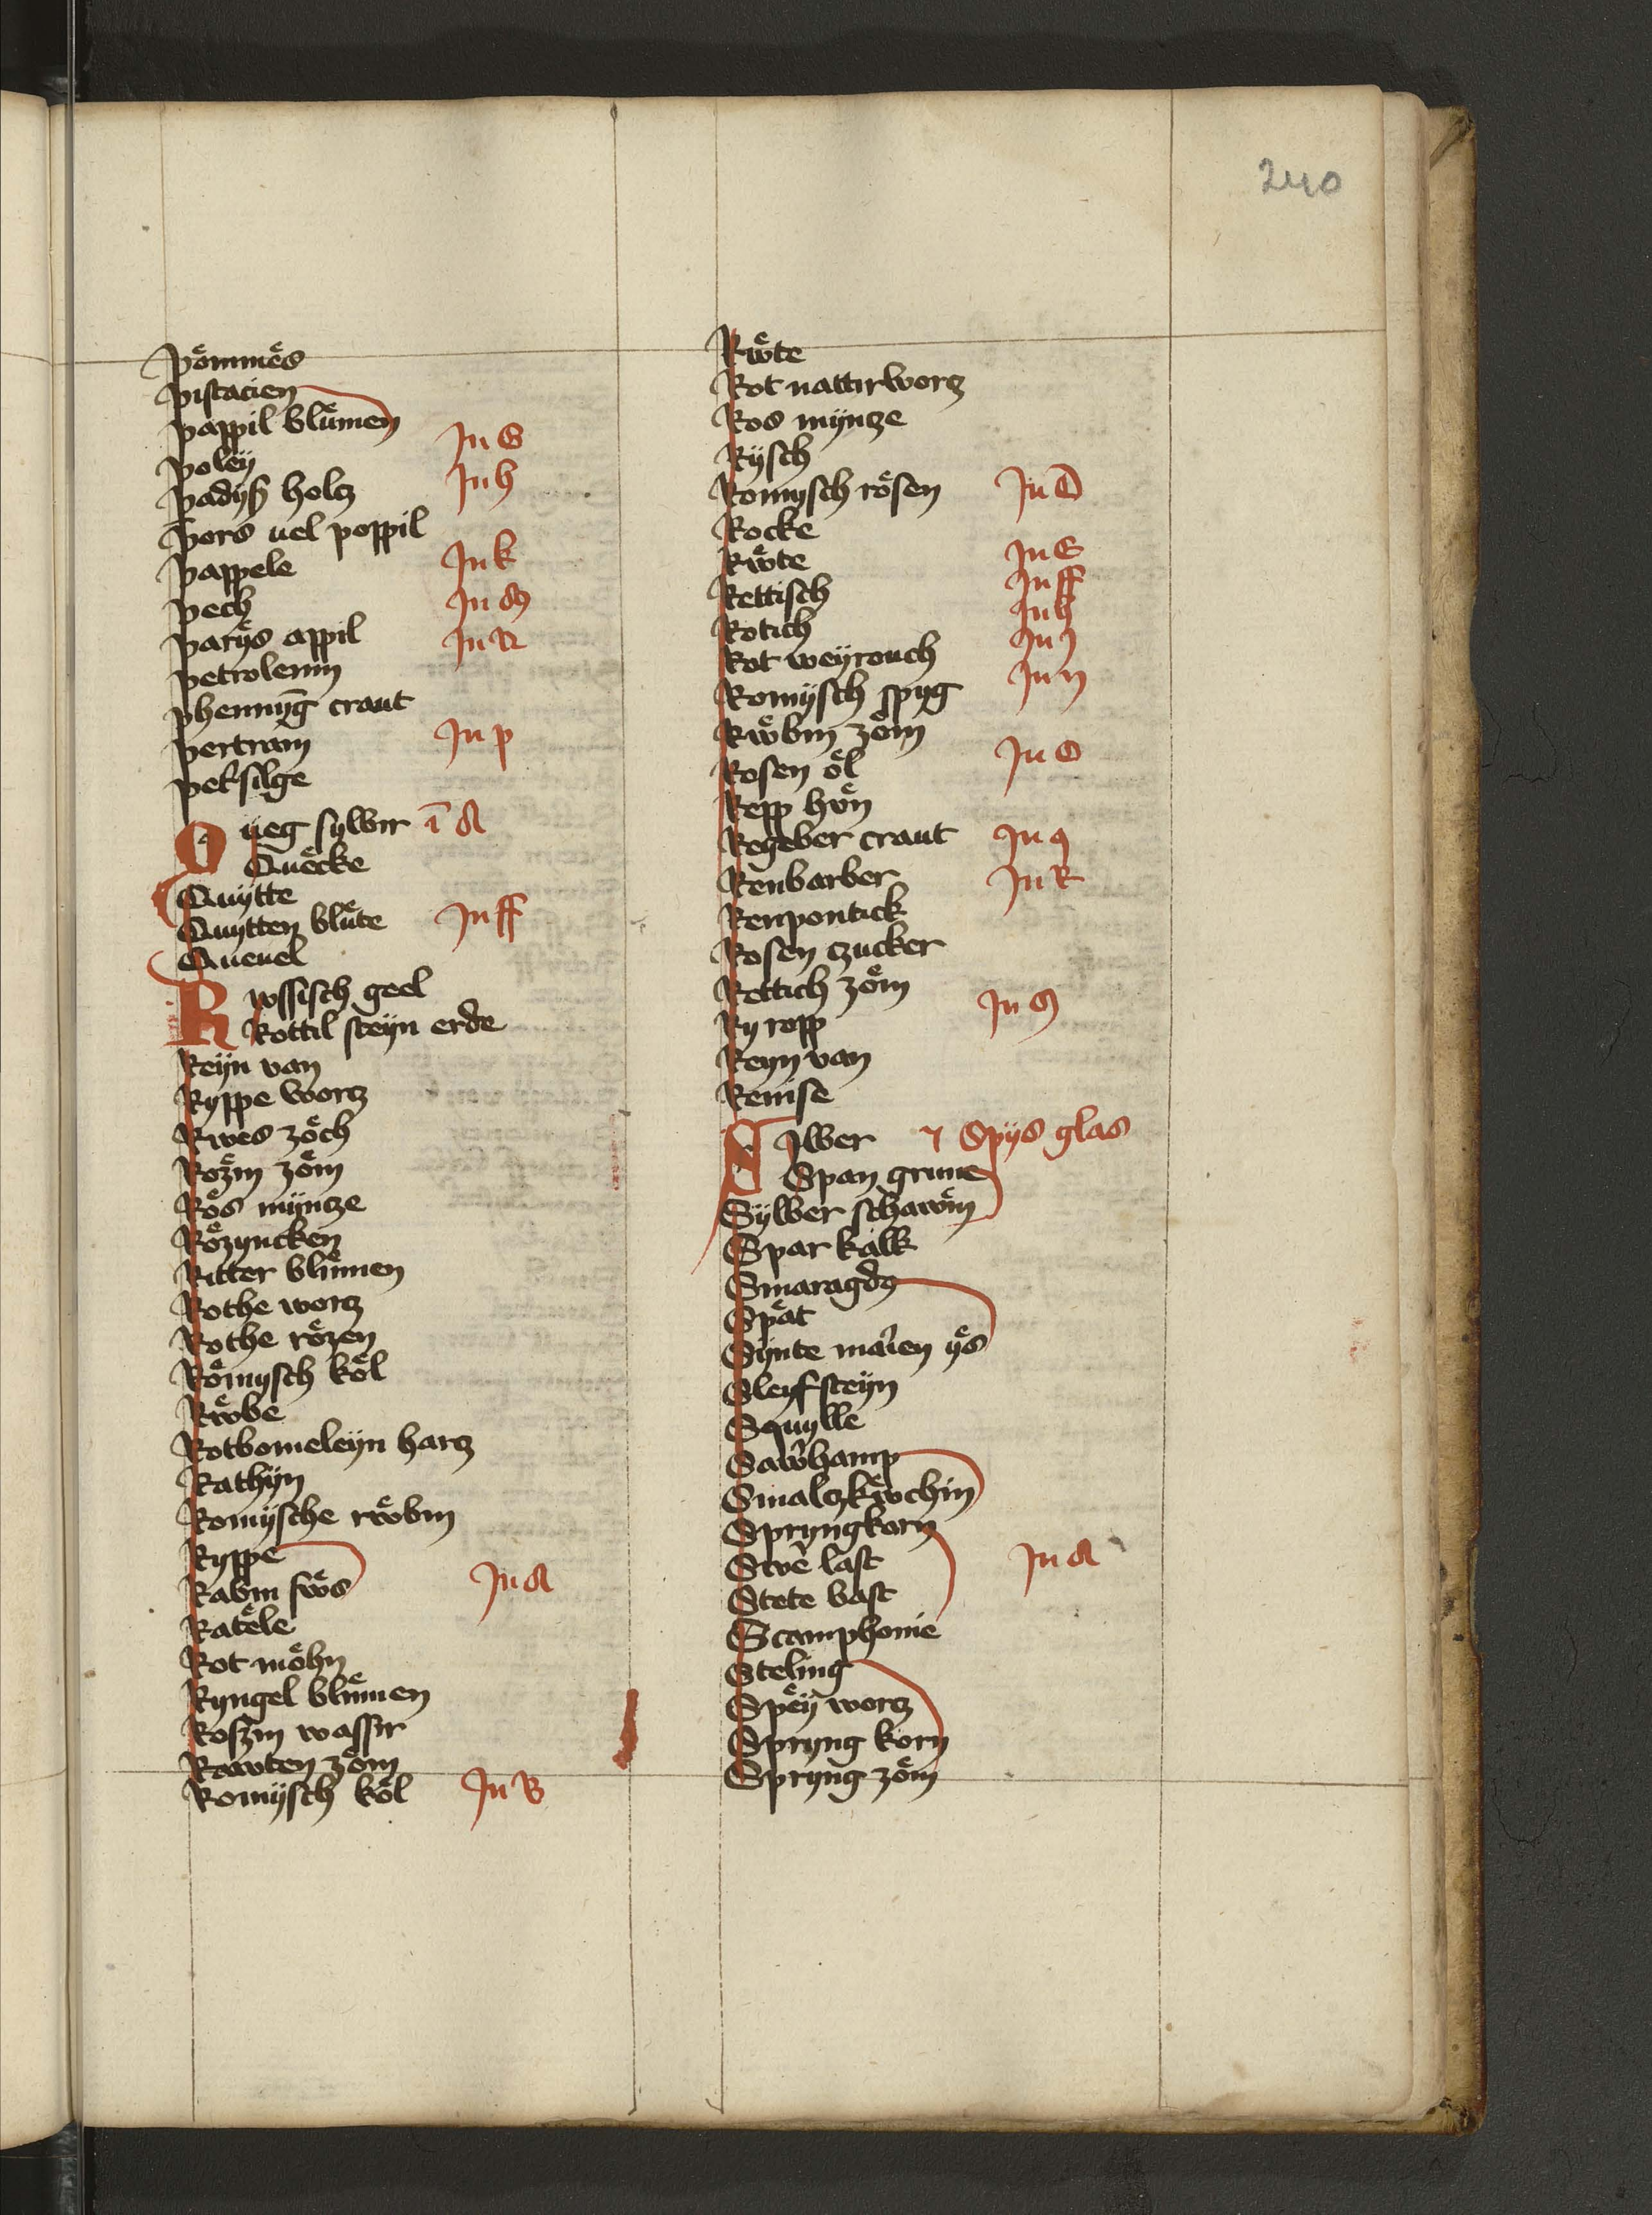 240
Pömmës
Pistacien
Pappil blümen
Poleÿ Jn G
Padyß holcz Jn h
Pors uel poppil
Pappele Jn k
Pech Jn M
Parÿs appil Jn R
Petroleum
Phennÿg craut
Pertram Jn p
Petersilge
Queg sylber i A
Quëcke
Quÿtte
Quytten blüte Jn ff
Queuel
Rwssisch geel
Rottil steÿn erde
Reÿn van
Ryppe worcz
Rwes zöch
Rözm zöm
Rös mÿncze
Rözyncken
Ritter blümen
Rothe worcz
Rothe rözen
Römysch köl
Rwöbe
Rotbomeleÿn harcz
Rathÿn
Romÿsche rwöbin
Ryppe
Rabin fwös Jn A
Ratële
Rot möhn
Ryngel blümen
Roszin wassir
Rawten zöm
Romÿsch köl Jn B
Rwöte
Rot nattirworcz
Ros mÿncze
Rÿsch
Romysch rösen Jn D
Rocke
Rwöte Jn E
Rettisch Jn ff
Rotich Jn h
Rot weÿrouch Jn J
Romÿsch spyg Jn n
Rwöbin zöm
Rosen öl Jn O
Repp hön
Regeber craut Jn q
Renbarber Jn R
Renpontick
Rosen czucker
Rettich zöm
Ry ropp Jn S
Reyn van
Renise
Sylber Spÿs glas
Span grune
Sÿlber schawm
Spar kalk
Smaragdg
Spät
Sÿnte marien ÿs
Sleyfsteÿn
Squylle
Sawrhamp
Smalczkwöchin
Spryngkorn
Stete last Jn A
Stete bast
Scamphonie
Steling
Spëÿ worcz
Spryng korn
Spryng zöm